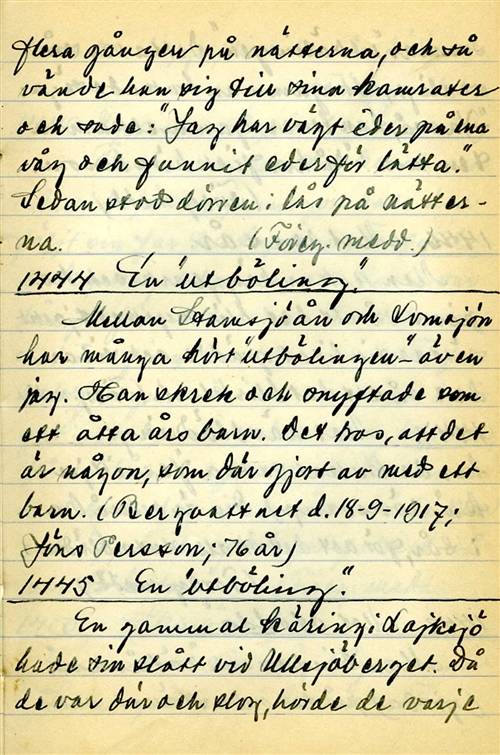 flera gånger på nätterna, och så
vände han sig till sina kamrater
och sade: "Jag har vägt eder på ena
våg och funnit eder för lätta."
Sedan stod dörren i lås på nätter-
na. (Föreg. medd.)
1444 En "utböling".
Mellan Stamsjöån och Lomsjön
har många hört "utbölingen" - även
jag. Han skrek och snyftade som
ett åtta års barn. Det tros, att det
är någon, som där gjort av med ett
barn. (Bergvattnet d. 18-9-1917;
Jöns Persson; 76 år)
1445 En "utböling".
En gammal käring i Lajksjö
hade sin slått vid Ullsjöberget. Då
de var där och slog, hörde de varje